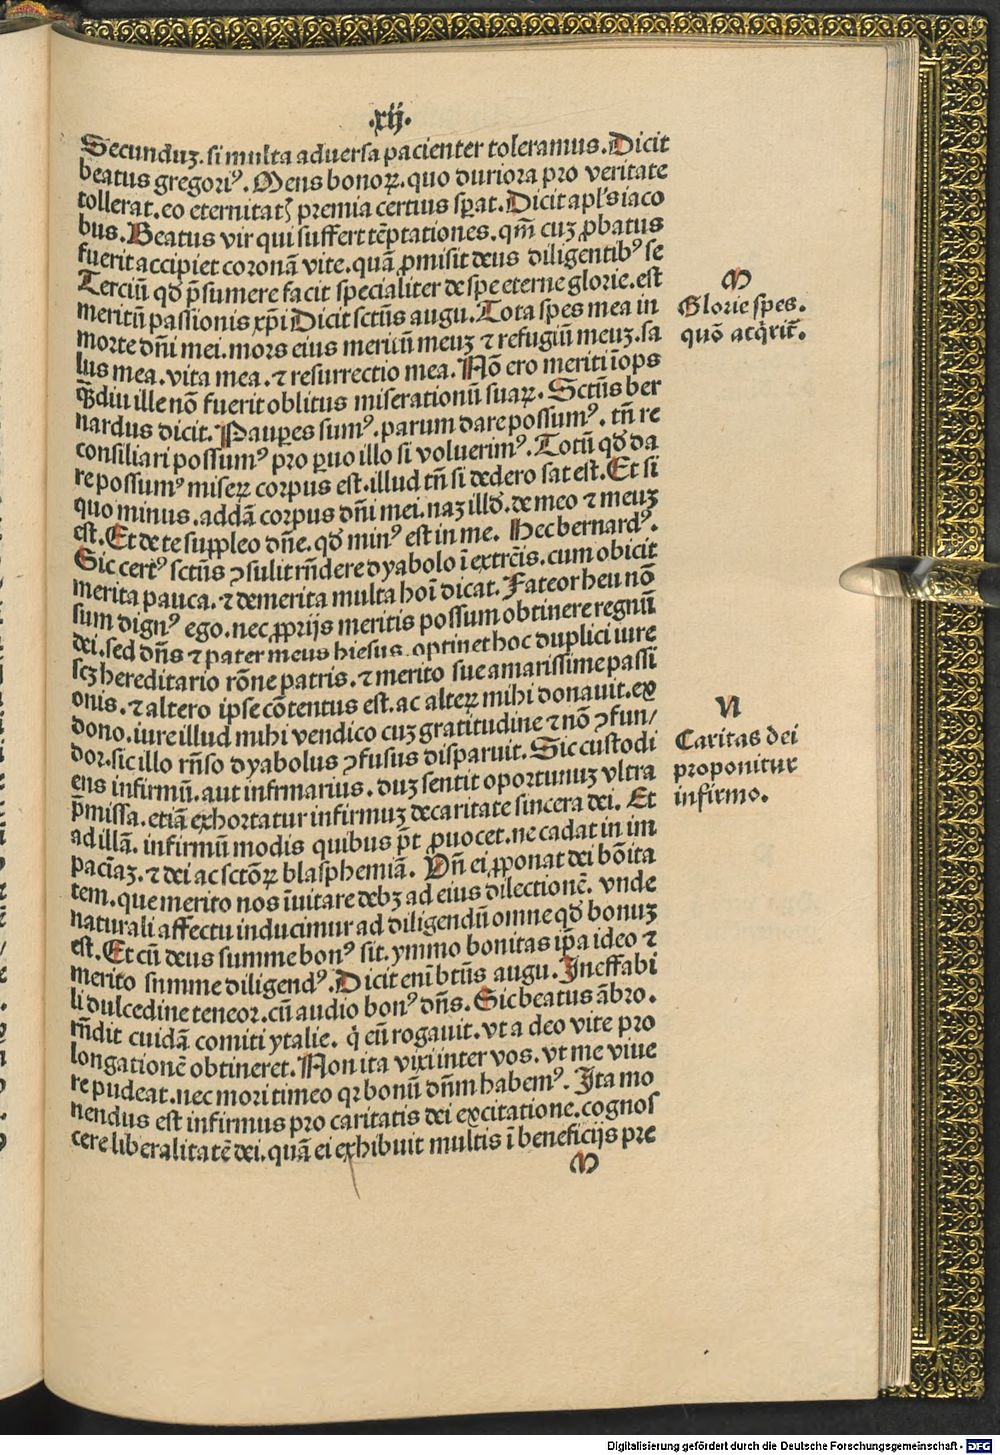 .xij.
Secunduꝫ. si multa aduersa pacienter toleramus. Dicit
beatus gregoriꝰ. Mens bonoꝝ. quo duriora pro veritate
tollerat. eo eternitatꝭ premia certius sꝑat. Dicit apl's iaco
bus. Beatus vir qui suffert tēptationes. qm̄ cuꝫ ꝓbatus
fuerit accipiet coronā vite. quā ꝓmisit deus diligentibꝰ se
Terciū qḋ p̄sumere facit specialiter de spe eterne glorie. est
meritū passionis xp̄i Dicit sctūs augu. Tota spes mea in
morte dn̄i mei. mors eius meritū meuꝫ ⁊ refugiū meuꝫ. sa
lus mea. vita mea. ⁊ resurrectio mea. Nō ero meriti īops
qͣ̄diu ille nō fuerit oblitus miserationū suaꝝ. Sctūs ber
nardus dicit. Pauꝑes sumꝰ. parum dare possumꝰ. tn̄ re
consiliari possumꝰ pro ꝑuo illo si voluerimꝰ. Totū qḋ da
re possumꝰ miseꝝ corpus est. illud tn̄ si dedero sat est. Et si
quo minus. addā corpus dn̄i mei. naꝫ illḋ. de meo ⁊ meuꝫ
est. Et de te suppleo dn̄e. qḋ minꝰ est in me. Hec bernardꝰ.
Sic certꝰ sctūs ꝯsulit rn̄dere dyabolo ī extrēis. cum obicit
merita pauca. ⁊ demerita multa hoī dicat. Fateor heu nō
sum dignꝰ ego. nec ꝓprijs meritis possum obtinere regnū
dei. sed dn̄s ⁊ pater meus hiesus. optinet hoc duplici iure
scꝫ hereditario rōne patris. ⁊ merito sue amarissime passi
onis. ⁊ altero ipse cōtentus est. ac alteꝝ mihi donauit. ex
dono. iure illud mihi vendico cuꝫ gratitudine ⁊ nō ꝯfun/
dor. sic illo rn̄so dyabolus ꝯfusus disparuit. Sic custodi
ens infirmū. aut infrmarius. duꝫ sentit oportunuꝫ vltra
p̄missa. etiā exhortatur infirmuꝫ de caritate sincera dei. Et
ad illā. infirmū modis quibus p̄t ꝓuocet. ne cadat in im
paciāꝫ. ⁊ dei ac sctōꝝ blasphemiā. Vn̄ ei ꝓponat dei bōita
tem. que merito nos īuitare debꝫ ad eius dilectionē. vnde
naturali affectu inducimur ad diligendū omne qḋ bonuꝫ
est. Et cū deus summe bonꝰ sit. ymmo bonitas ip̄a ideo ⁊
merito summe diligendꝰ. Dicit enī btūs augu. Ineffabi
li dulcedine teneor. cū audio bonꝰ dn̄s. Sic beatus ābro.
rn̄dit cuidā comiti ytalie. q̇ eū rogauit. vt a deo vite pro
longationē obtineret. Non ita vixi inter vos. vt me viue
re pudeat. nec mori timeo qꝛ bonū dn̄m habemꝰ. Ita mo
nendus est infirmus pro caritatis dei excitatione. cognos
cere liberalitatē dei. quā ei exhibuit multis ī beneficijs pre
M
M
Glorie spes.
quō acq̇rit᷑.
N
Caritas dei
proponitur
infirmo.
Digitalisierung gefördert durch die Deutsche Forschungsgemeinschaft - DFG